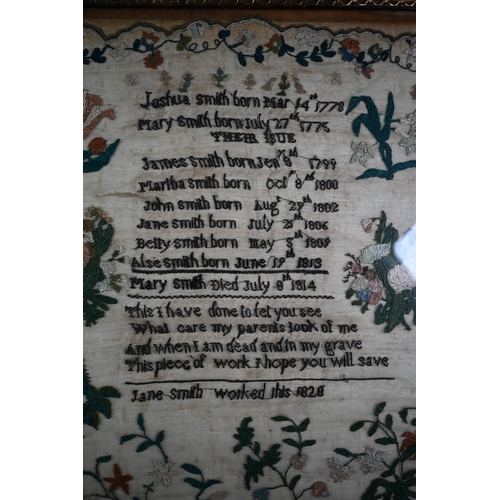 Joshua Smith born Mar 14th 1778
Mary Smith born July 27th 1775
THEIR ISUE
James Smith born Jen 8th 1799
Martha Smith born Oct 8th 1800
John Smith born Augt 29th 1802
Jane Smith born July 25th 1806
Betty Smith born may 5th 1809
Alse Smith born June 19th 1813
Mary Smith Died July 8th 1814
This I have done to let you see
What care my parents took of me
And when I am dead and in my grave
This piece of work I hope you will save
Jane Smith worked this 1820